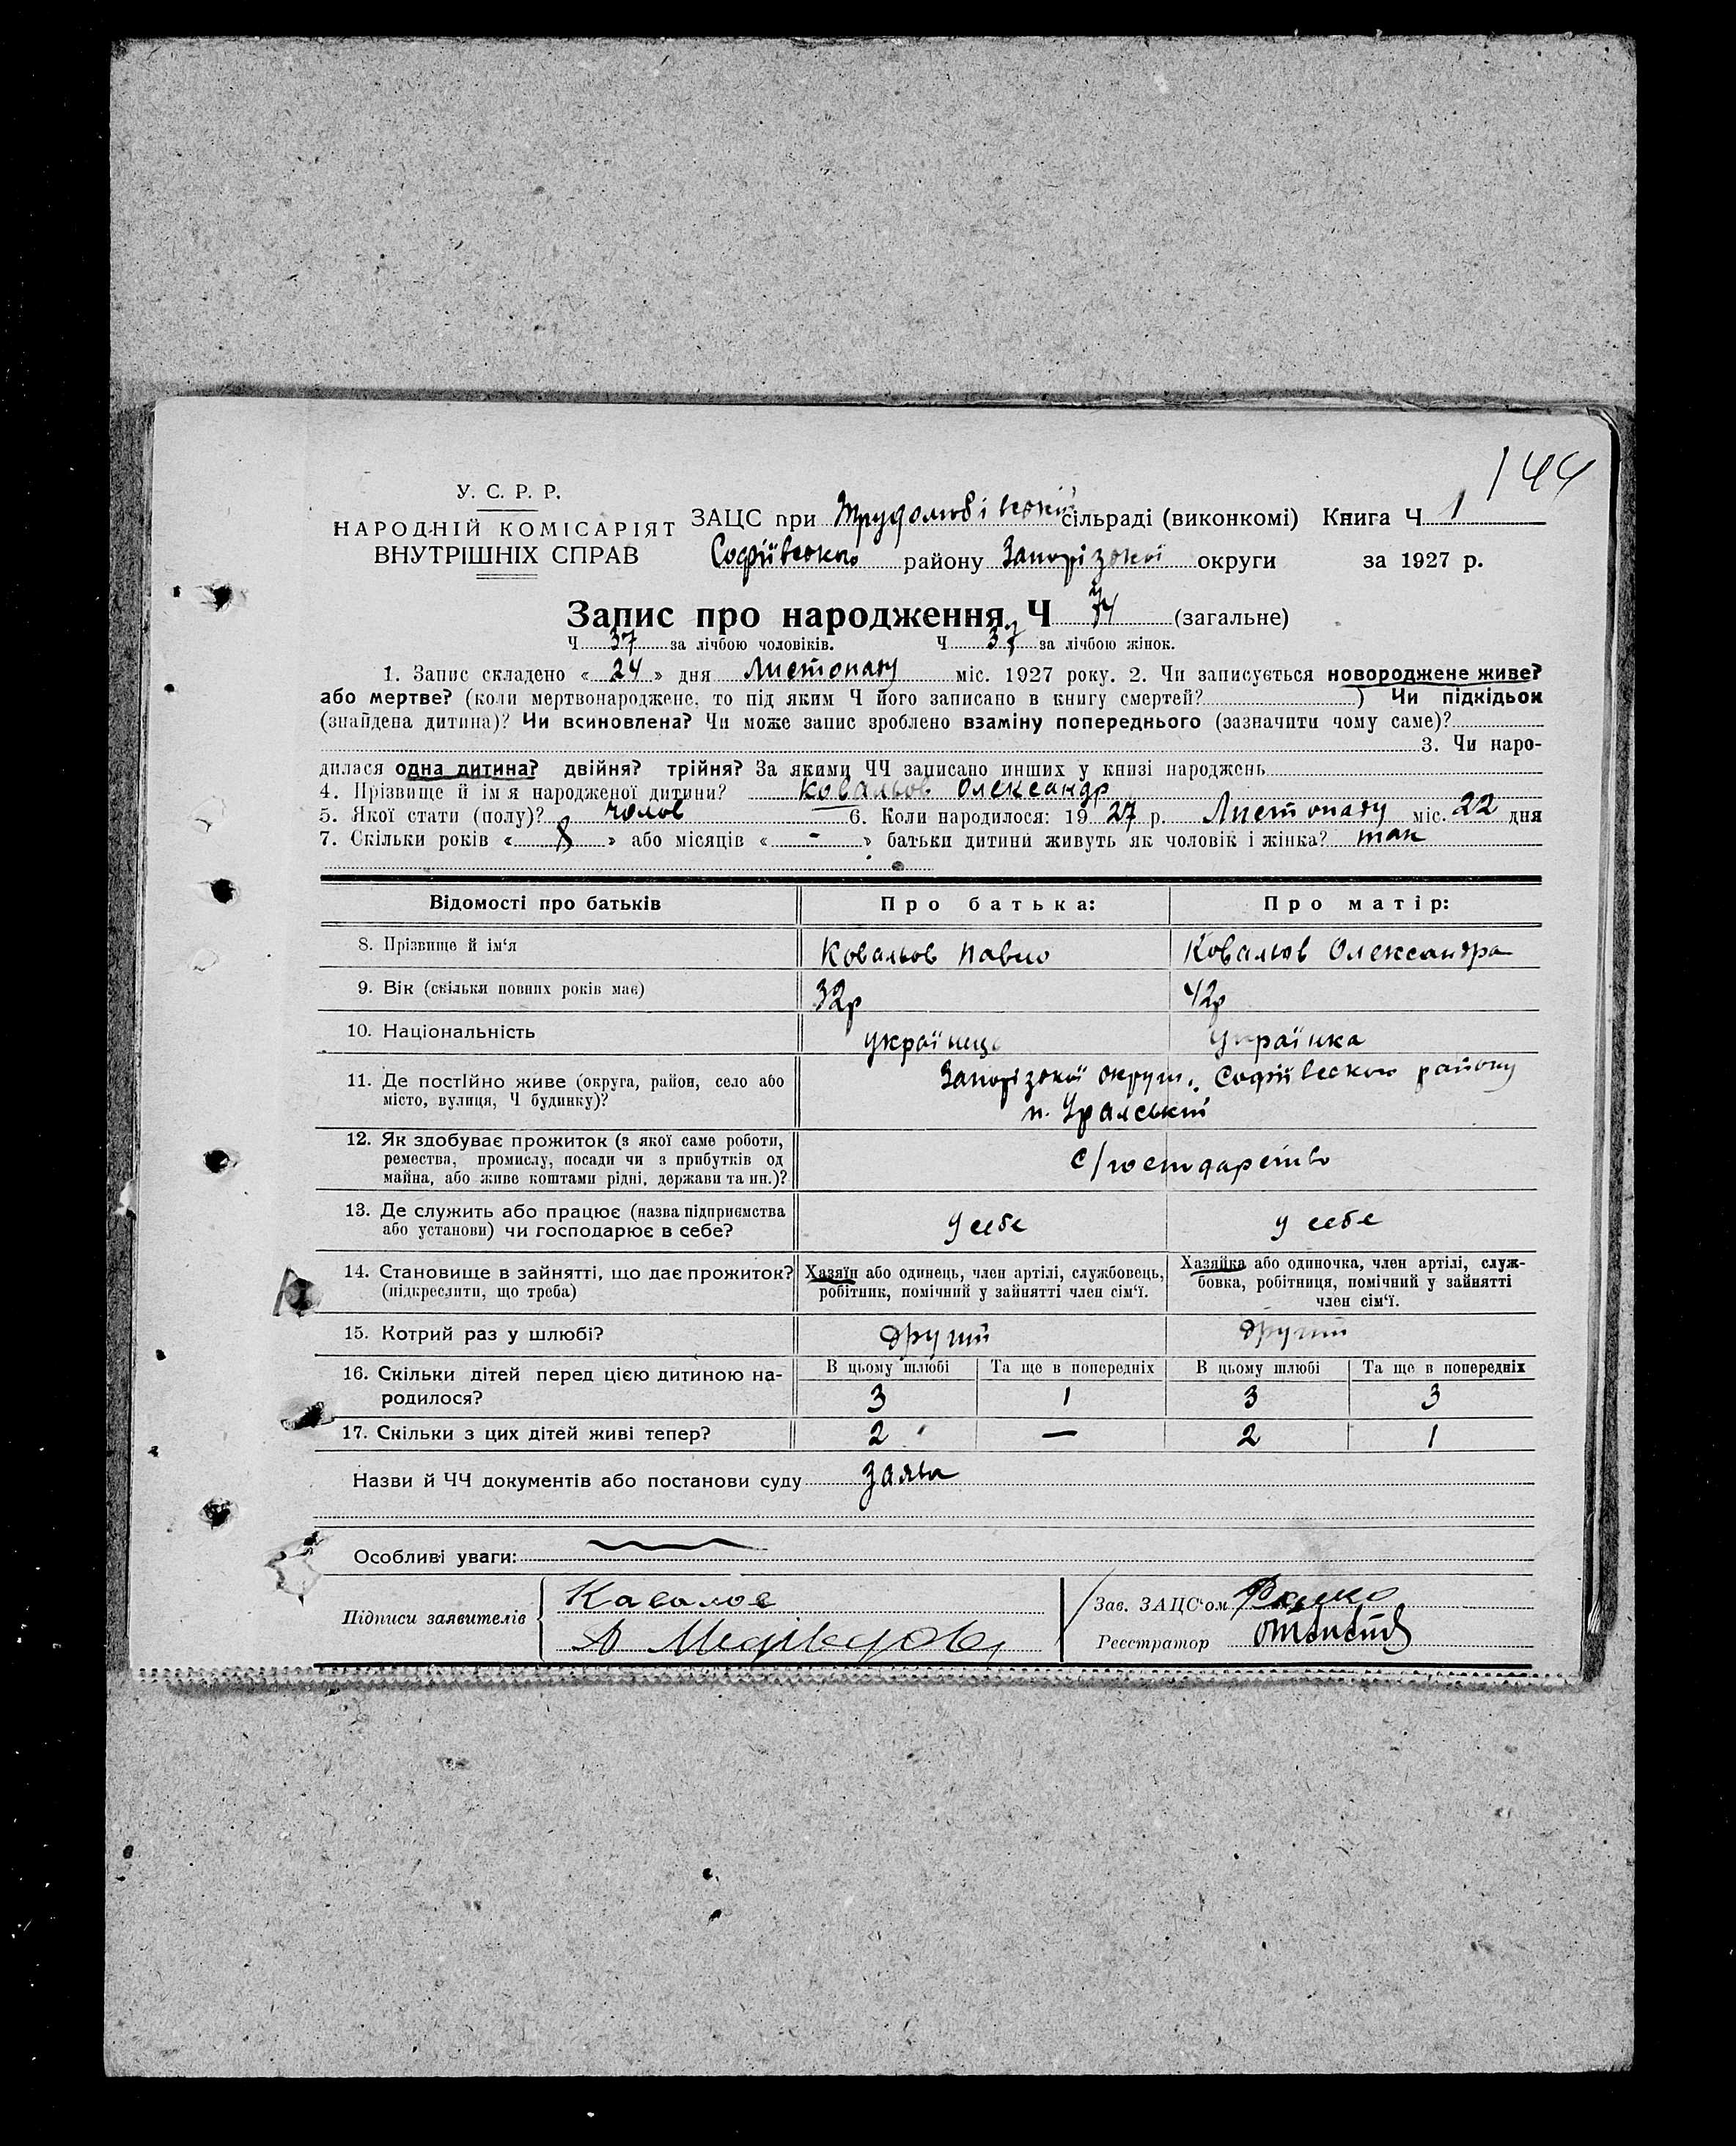 144
У. С. Р. Р.
НАРОДНІЙ КОМІСАРІЯТ
ВНУТРІШНІХ СПРАВ
ЗАЦС при Трудолюбівській сільраді (виконкомі) Книга Ч 1
Софіївського району Запорізької округи за 1927 р.
Запис про народження Ч 74 (загальне)
Ч 37 за лічбою чоловіків. Ч 37 за лічбою жінок.
1. Запис складено « 24 » дня Листопаду міс. 1927 року. 2. Чи записується новороджене живе?
або мертве? (коли мертвонароджене, то під яким Ч його записано в книгу смертей? ) Чи підкідьок
(знайдена дитина)? Чи всиновлена? Чи може запис зроблено взаміну попереднього (зазначити чому саме)?
3. Чи наро-
дилася одна дитина? двійня? трійня? За якими ЧЧ записано инших у книзі народжень
4. Прізвище й ім'я народженої дитини? Ковальов Олександр
5. Якої стати (полу)? чолов 6. Коли народилося: 19 27 р. Листопаду міс. 22 дня
7. Скільки років « 8 » або місяців « - » батьки дитини живуть як чоловік і жінка? так
Відомості про батьків Про батька: Про матір:
8. Прізвище й ім'я Ковальов Павло Ковальов Олександра
9. Вік (скільки повних років має) 32р 42р
10. Національність українец Українка
11. Де постійно живе (округа, район, село або Запорізької округи, Софіївського району
місто, вулиця, Ч будинку)? п. Уралський
12. Як здобуває прожиток (з якої саме роботи,
ремества, промислу, посади чи з прибутків од с/господарство
майна, або живе коштами рідні, держави та ин.)?
13. Де служить або працює (назва підприємства у себе у себе
або установи) чи господарює в себе?
14. Становище в зайнятті, що дає прожиток? Хазяїн або одинець, член артілі, службовець, Хазяйка або одиночка, член артілі, служ-
(підкреслити, що треба) робітник, помічний у зайнятті член сім'ї. бовка, робітниця, помічний у зайнятті
член сім'ї.
15. Котрий раз у шлюбі? другий другий
16. Скільки дітей перед цією дитиною на- В цьому шлюбі Та ще в попередніх В цьому шлюбі Та ще в попередніх
родилося? 3 1 3 3
17. Скільки з цих дітей живі тепер? 2 — 2 1
Назви й ЧЧ документів або постанови суду заява
Особливі уваги:
Підписи заявителів Каволов
А Медведов
Зав. ЗАЦС'ом
Реєстратор